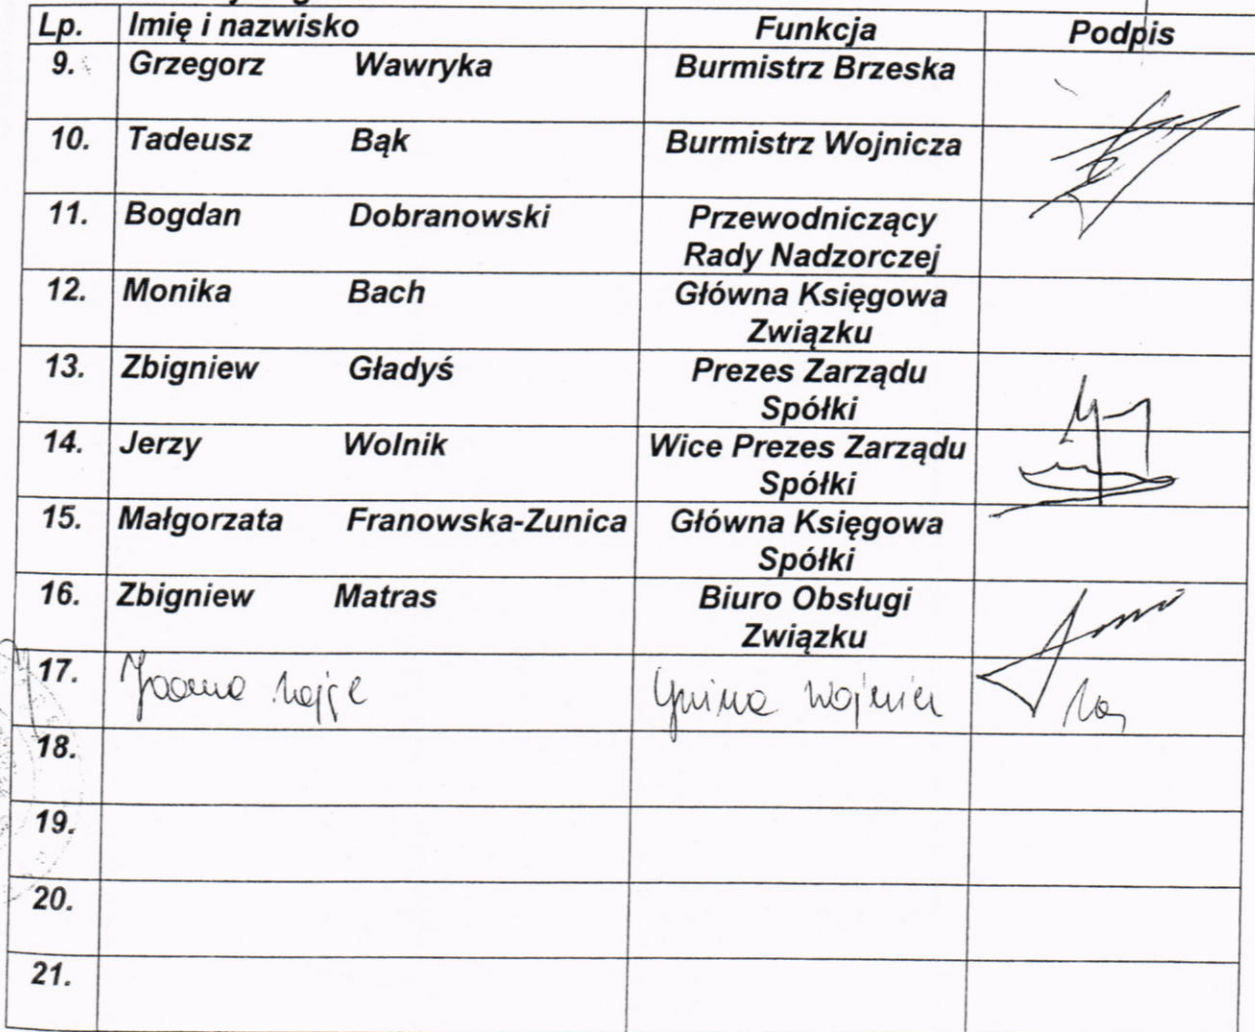 Lp. Imię i nazwisko Funkcja Podpis
9. Grzegorz Wawryka Burmistrz Brzeska
10. Tadeusz Bąk Burmistrz Wojnicza
11. Bogdan Dobranowski Przewodniczący
Rady Nadzorczej
12. Monika Bach Główna Księgowa
Związku
13. Zbigniew Gładyś Prezes Zarządu
Spółki
14. Jerzy Wolnik Wice Prezes Zarządu
Spółki
15. Małgorzata Franowska-Zunica Główna Księgowa
Spółki
16. Zbigniew Matras Biuro Obsługi
Związku
17. Joanna Gmina Wojnicz
18.
19.
20.
21.